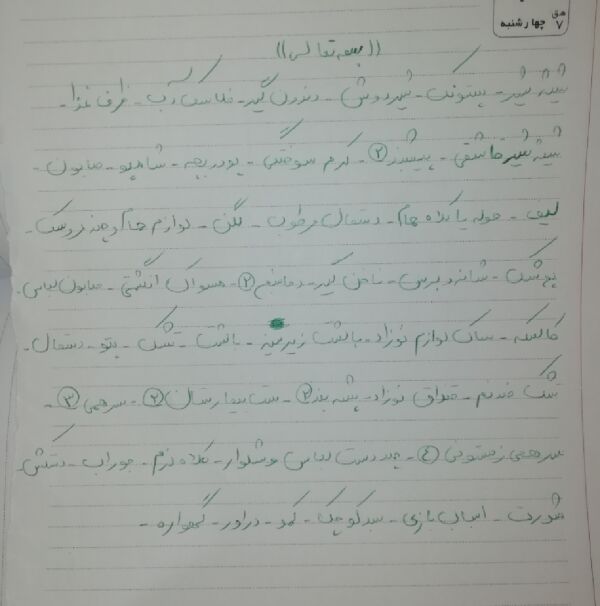 هـ ق
۷ چهارشنبه
((بسمه تعالی))
شیشه شیر - پستونک - شیردوش - دندون گیر - فلاسک آب - ظرف غذا -
شیشه شیر قاشقی - پیشبند ۲ - کرم سوختگی - پودر بچه - شامپو - صابون -
لیف - حوله با کلاه حمام - دستمال مرطوب - لگن - لوازم حمام و چند عروسک -
پوشک - شانه و برس - ناخن گیر - دماسنج ۲ - مسواک انگشتی - صابون لباس -
کالسکه - ساک لوازم نوزاد - بالشت زیر سینه - بالشت - تشک - پتو - دستمال -
تشک - قنداق نوزاد - پشه بند ۲ - ست بیمارستان ۲ - سرهمی ۳ -
سرهمی زمستونی ۴ - چند دست لباس و شلوار - کلاه نرم - جوراب - دستکش
شورت - اسباب بازی - سبد کوچک - کمد - دراور - گهواره -